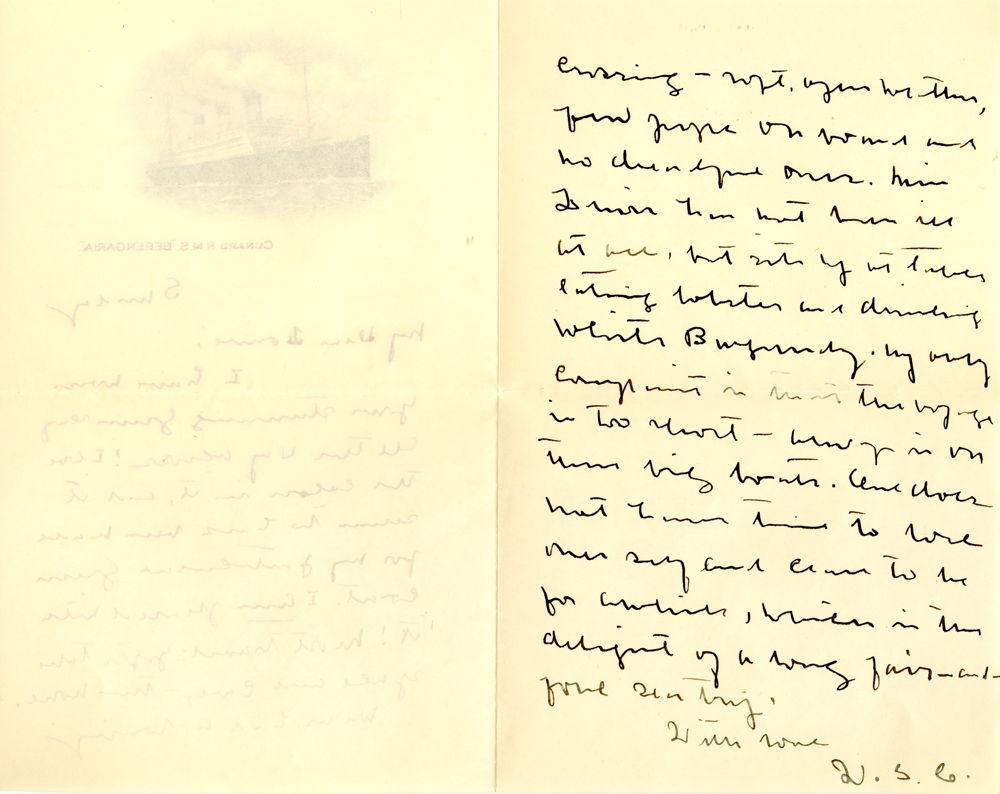 CUNARD R.M.S. "BERENGARIA"
Sunday
My Dear
I have worn
your stunning jewelry
all the way over! I love
the colour in it, and it
seems to have been made
for my green
coat. I am pleased with
it! Most travel gifts
and
We
crossing — soft, open weather,
few people on board and
no disagreeable ones. Miss
Lewis has not been ill
at all, but sits up at table
eating lobster and drinking
white Burgundy. My only
complaint is that the voyage
is too short — always is on
these big boats. One does
not have time to lose
one's self and cease to be
for awhile, which is the
delight of a long fair-and-
fine sea trip.
With love
W. S. C.